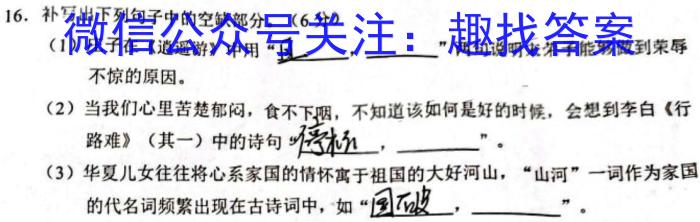 16. 补写出下列句子中的空缺部分。(6分)
微信公众号关注：趣找答案
(1) 庄子在《逍遥游》中用“____，____”两句说明宋荣子能够做到荣辱
不惊的原因。
(2) 当我们心里苦楚郁闷，食不下咽，不知道该如何是好的时候，会想到李白《行
路难》（其一）中的诗句“停杯，____”。
(3) 华夏儿女往往将心系家国的情怀寓于祖国的大好河山，“山河”一词作为家国
的代名词频繁出现在古诗词中，如“国破，____”。